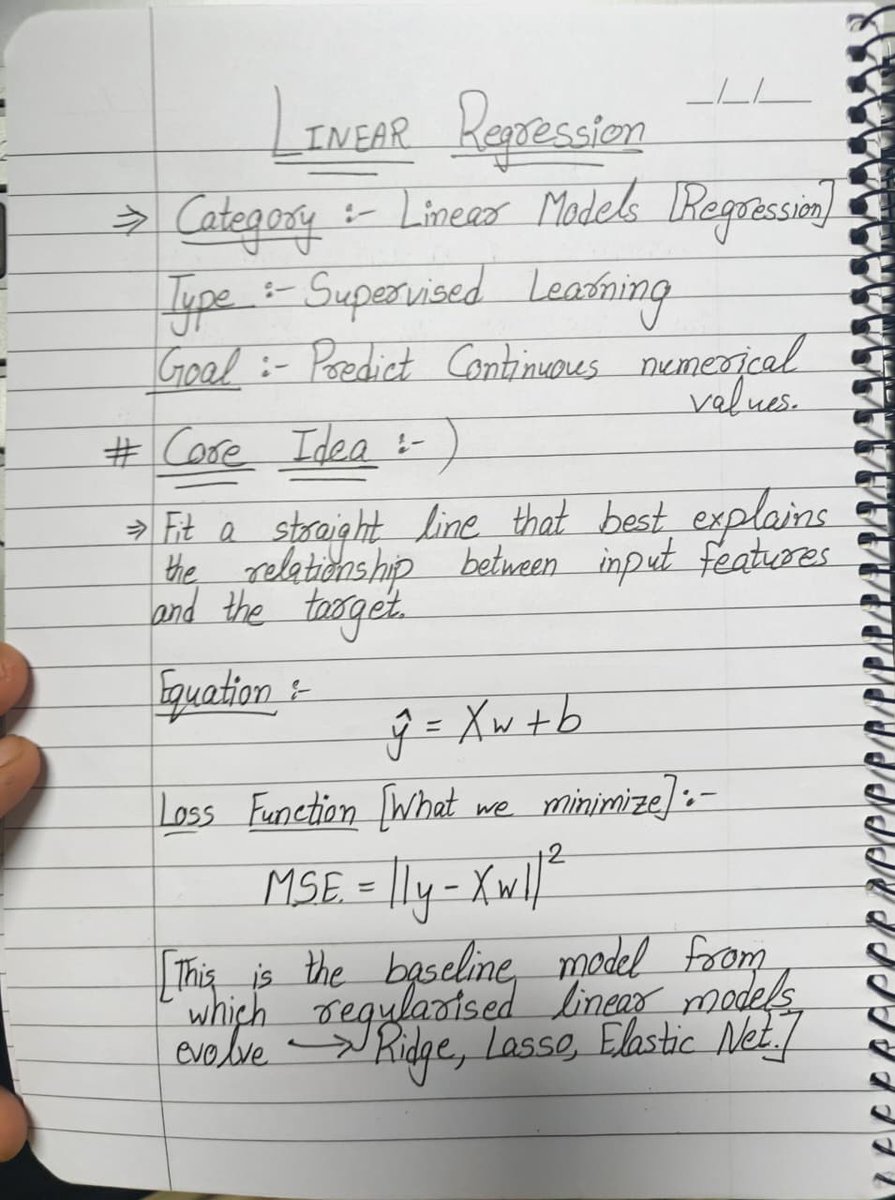 _/_/__
LINEAR Regression
⇒ Category :- Linear Models [Regression]
Type :- Supervised Learning
Goal :- Predict Continuous numerical
values.
# Core Idea :- )
⇒ Fit a straight line that best explains
the relationship between input features
and the target.
Equation :-
ŷ = Xw + b
Loss Function [What we minimize] :-
MSE = ||y - Xw||²
[This is the baseline model from
which regularised linear models
evolve → Ridge, Lasso, Elastic Net.]